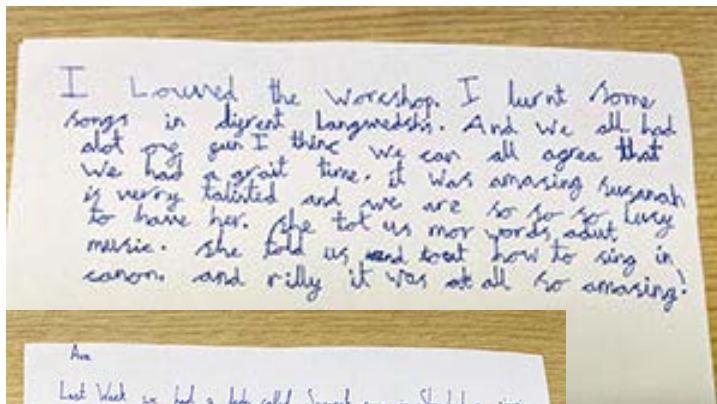 I Louved the worcshop. I lurnt some
songs in digrent Langwedshs. And we all had
alot og gun I thinc we can all agrea that
we had a grait time. it was amasing susanah
is verry talinted and we are so so so lucy
to have her. she tot us mor words adut
music. she told us and tout how to sing in
canon. and rilly it was at all so amasing!
Ava
Last Week we had a lady called